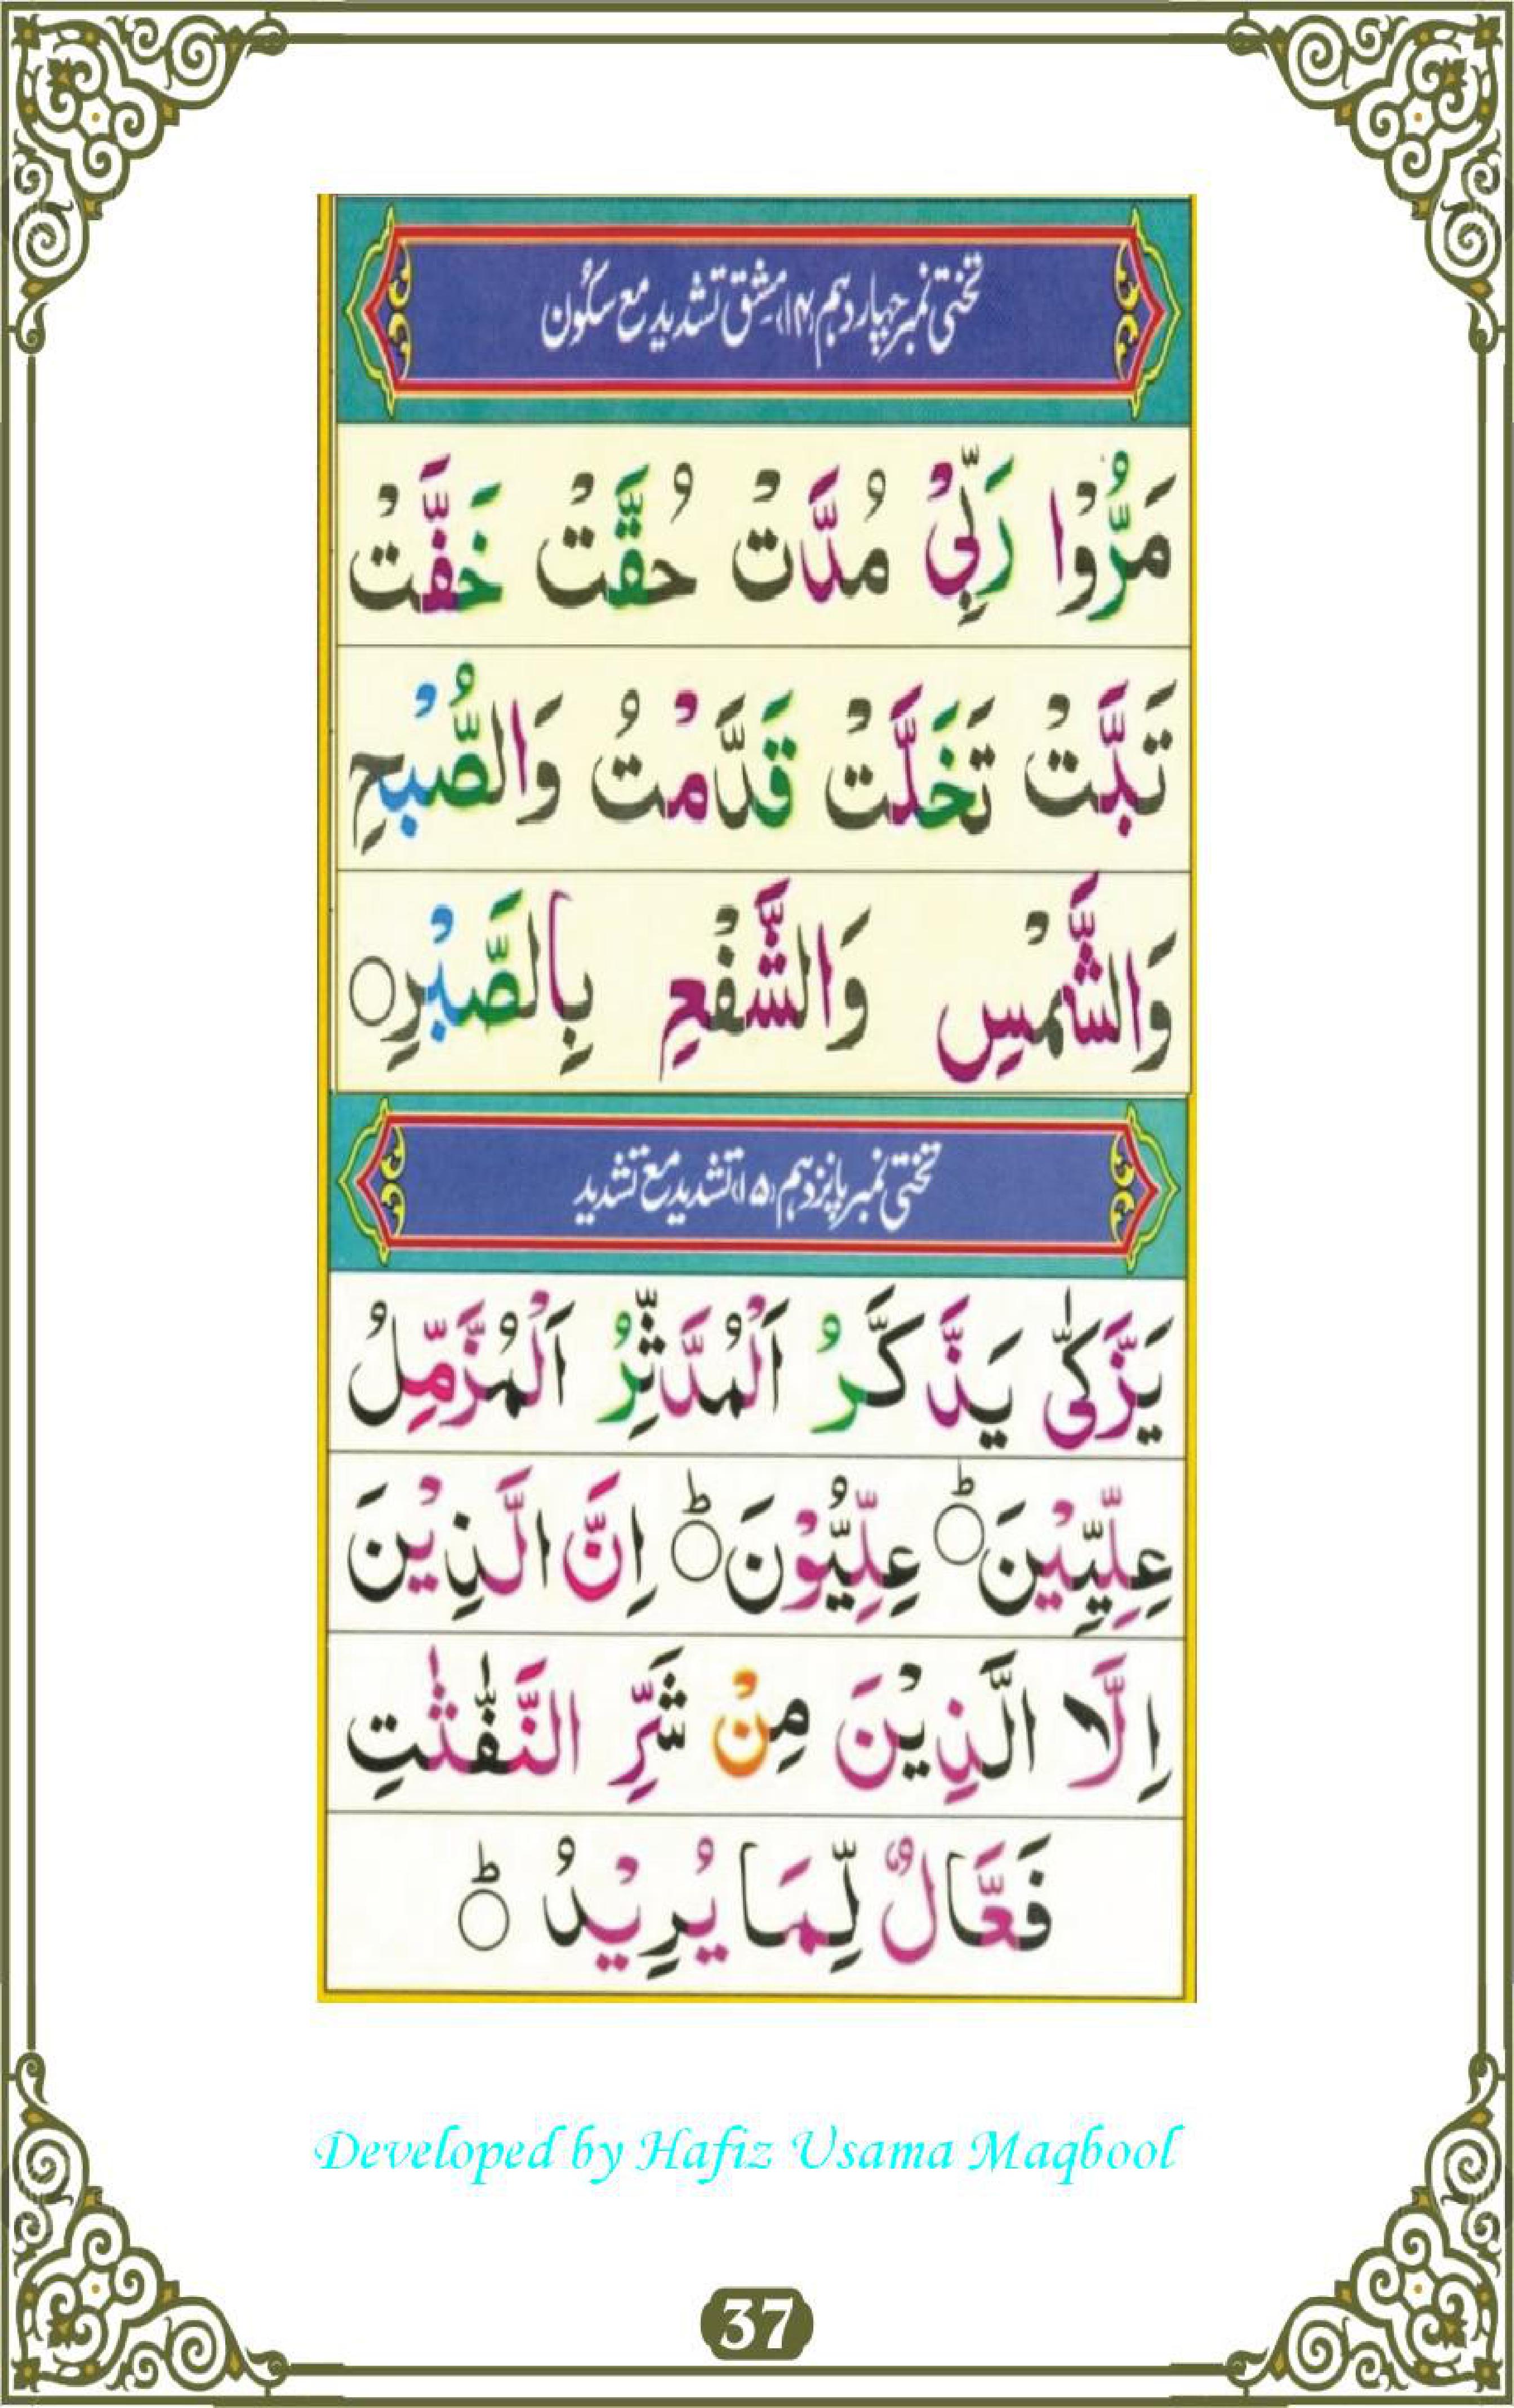 تختی نمبر چہاردہم (۱۴) مشق تشدید مع سکُون
مَرُّوْا رَبِّیْ مُدَّتْ حُقَّتْ خَفَّتْ
تَبَّتْ تَخَلَّتْ قَدَّمْتُ وَالصُّبْحِ
وَالشَّمْسِ وَالشَّفْعِ بِالصَّبْرِ○
تختی نمبر پانزدہم (۱۵) تشدید مع تشدید
یَزَّکّٰی یَذَّکَّرُ اَلْمُدَّثِّرُ اَلْمُزَّمِّلُ
عِلِّیِّیْنَ○ؕ عِلِّیُّوْنَ○ؕ اِنَّ الَّذِیْنَ
اِلَّا الَّذِیْنَ مِنْ شَرِّ النَّفّٰثٰتِ
فَعَّالٌ لِّمَا یُرِیْدُ○ؕ
Developed by Hafiz Usama Maqbool
37